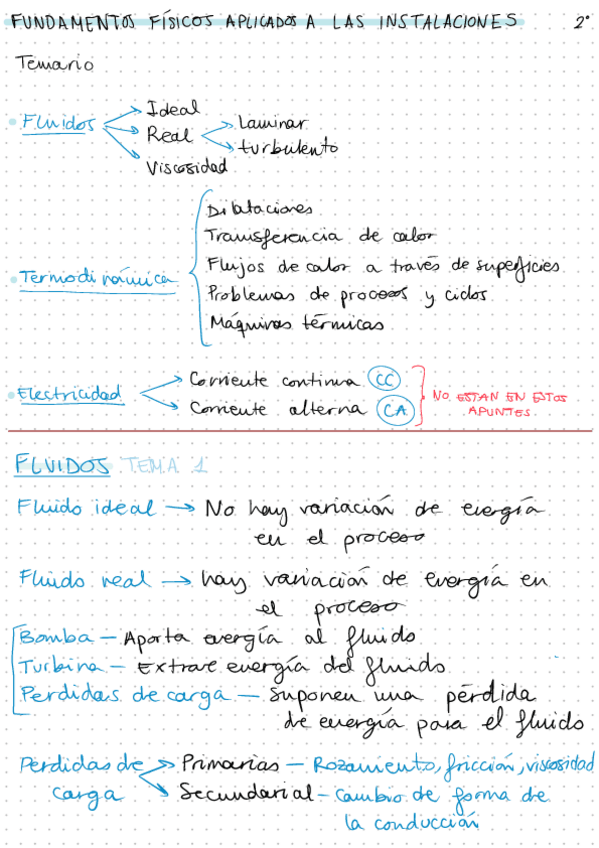 FUNDAMENTOS FÍSICOS APLICADOS A LAS INSTALACIONES 2º
Temario
Fluidos
Ideal
Real
Laminar
turbulento
Viscosidad
Termodinámica
Dilataciones
Transferencia de calor
Flujos de calor a través de superficies
Problemas de procesos y ciclos
Máquinas térmicas
Electricidad
Corriente continua CC
Corriente alterna CA
NO ESTAN EN ESTOS
APUNTES
FLUIDOS TEMA 1
Fluido ideal → No hay variación de energía
en el proceso
Fluido real → hay variación de energía en
el proceso
Bomba - Aporta energía al fluido
Turbina - Extrae energía del fluido
Perdidas de carga - Suponen una pérdida
de energía para el fluido
Perdidas de → Primarias - Rozamiento, fricción, viscosidad
carga → Secundarial - Cambio de forma de
la conducción